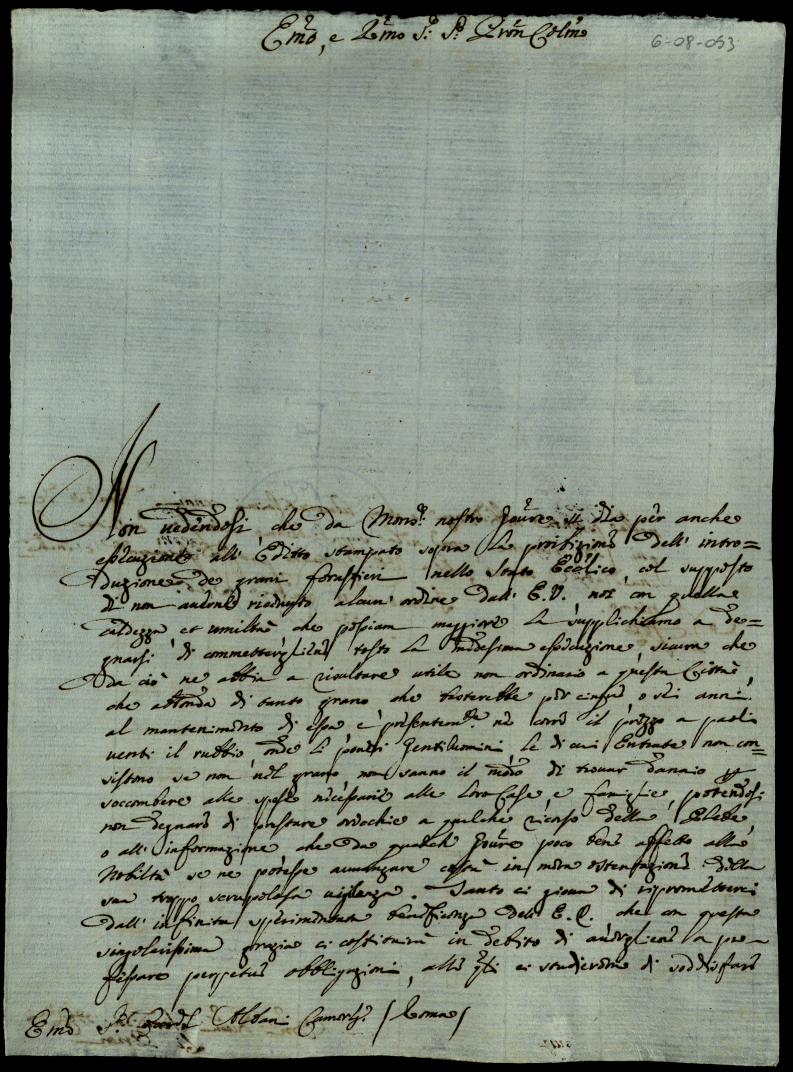 Em̃o, e Rm̃o Sr. Sr. Prõn Colm̃o
6-08-053
Non vedendosi che da Monsr. nostro Goṽre si dia per anche
esecuzione all' Editto stampato sopra la proibizione dell' intro=
duzione de grani forastieri nello Stato Eccĺico col supposto
di non averne ricevuto alcun ordine dall' E.V. noi con quella
caldezza et umiltà che possiam maggiore la supplichiamo a de=
gnarsi di commettergliene tosto la med̃esima esecuzione, sicura che
da ciò ne abbia a risultare utile non ordinario a questa Città
che abonda di tanto grano che basterebbe per cinque o sei anni
al mantenimento di essa e presentemte. ne corre il prezzo a paoli
venti il rubbio onde li poveri Gentiluomini le di cui Entrate non con=
sistono se non nel grano non sanno il modo di trovar danaio p
soccombere alle spese necessarie alle loro Case e famiglie, potendosi
non degnare di prestare orecchie a qualche ricorso della Plebe
o all' informazione che da qualch Goṽre poco bene affetto alla
Nobiltà se ne potesse avvanzare costà in mera ostentazione della
sua troppo scrupolosa vigilanza. Tanto ci giova di riprometterci
dall' infinita sperimentata beneficenza dell' E.V. che con questa
singolarissima grazia ci costituirà in debito di avergliene a pro=
fessare perpetue obbligazioni, alle qli ci studieremo di soddisfare
Em̃o Sr. Card̃l Albani Camerlgo. (Roma)